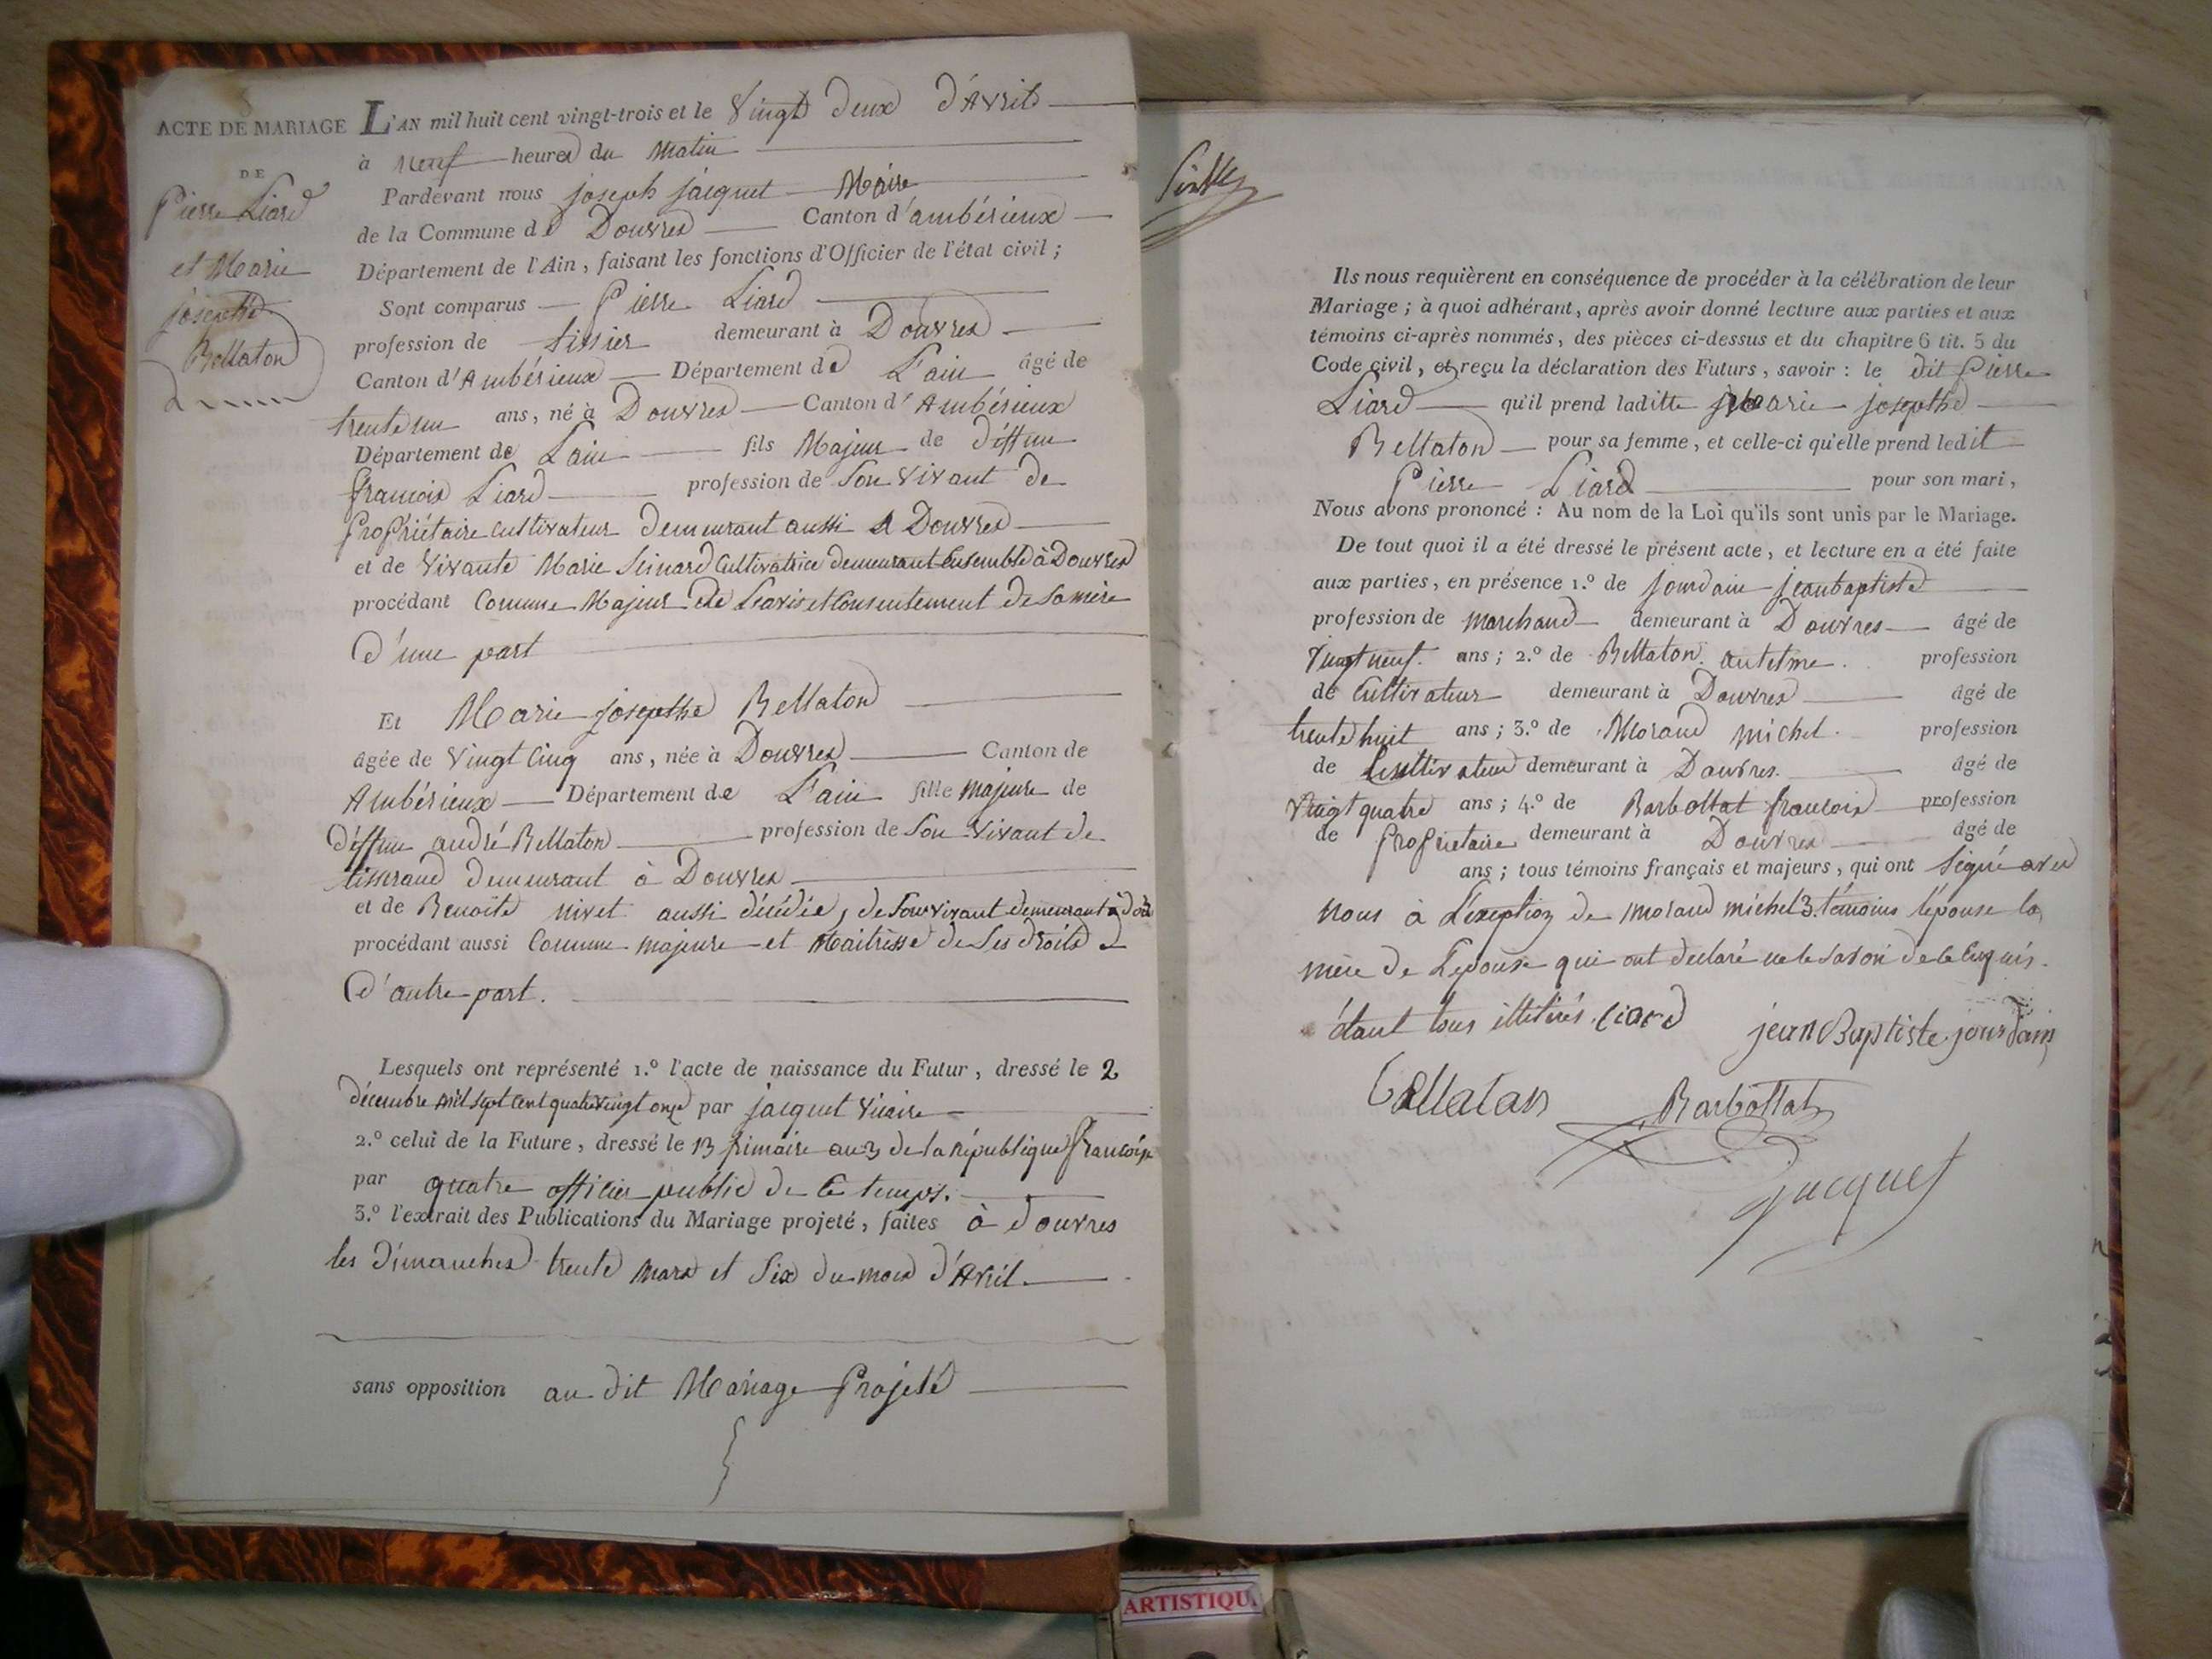 ACTE DE MARIAGE
DE
Pierre Liard
et Marie
josephte
Bellaton
L'AN mil huit cent vingt-trois et le Vingt deux d'Avril
à neuf heures du Matin
Pardevant nous joseph jacquet Maire
de la Commune de Douvres Canton d'ambérieux
Département de l'Ain, faisant les fonctions d'Officier de l'état civil;
Sont comparus Pierre Liard
profession de tissier demeurant à Douvres
Canton d'Ambérieux Département de L'ain âgé de
trente un ans, né à Douvres Canton d'Ambérieux
Département de Lain fils Majeur de déffun
francois Liard profession de Son Vivant de
Propriétaire cultivateur demeurant aussi a Douvres
et de Vivante Marie Cultivatrice demeurant Ensemble à Douvres
procédant Comme Majeur et de Lavis et Consentement de Sa mère
D'une part
Et Marie josephte Bellaton
âgée de Vingt Cinq ans, née à Douvres Canton de
Ambérieux Département de L'ain fille majeure de
déffun andré Bellaton profession de Son Vivant de
tisserand demeurant à Douvres
et de Benoite nivet aussi décédée, de Son vivant demeurant à
procédant aussi Comme majeure et Maitrisse de Ses droits
D'autre part.
Lesquels ont représenté 1.º l'acte de naissance du Futur, dressé le 2
décembre mil Sept Cent quatre Vingt onze par jacquet Vicaire
2.º celui de la Future, dressé le 13 frimaire an 3 de la république francoise
par quatre officier public de Ce temps.
3.º l'extrait des Publications du Mariage projeté, faites à douvres
les Dimanches trente mars et Six du mois d'Avril
sans opposition au dit Mariage Projeté
Ils nous requièrent en conséquence de procéder à la célébration de leur
Mariage; à quoi adhérant, après avoir donné lecture aux parties et aux
témoins ci-après nommés, des pièces ci-dessus et du chapitre 6 tit. 5 du
Code civil, et reçu la déclaration des Futurs, savoir: le dit Pierre
Liard qu'il prend laditte Marie josephte
Bellaton pour sa femme, et celle-ci qu'elle prend ledit
Pierre Liard pour son mari,
Nous avons prononcé: Au nom de la Loi qu'ils sont unis par le Mariage.
De tout quoi il a été dressé le présent acte, et lecture en a été faite
aux parties, en présence 1.º de jourdain jean baptiste
profession de marchand demeurant à Douvres âgé de
Vingt neuf. ans; 2.º de Bellaton antelme. profession
de Cultivateur demeurant à Douvres âgé de
trente huit ans; 3.º de Morand michel. profession
de Cultivateur demeurant à Douvres. âgé de
Vingt quatre ans; 4.º de Barbollat francois profession
de Propriétaire demeurant à Douvres âgé de
ans; tous témoins français et majeurs, qui ont Signé avec
nous à L'exeption de morand michel 3. témoins l'épouse la
mère de Lepouse qui ont declaré ne le Savoir de ce Enquis.
étant tous illitirés. Liard jean Baptiste jourdain
Bellaton Barbollat
jacquet
ARTISTIQU